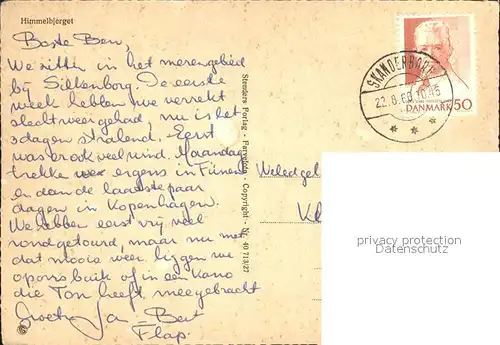 Himmelbjerget
Beste Ben,
We zitten in het merengebied
bij Silkenborg. De eerste
week hebben we verrekt
slecht weer gehad, nu is het
3 dagen stralend. Eerst
was er ook veel wind. Maandag
trekken we ergens in Fünen
en dan de laatste paar
dagen in Kopenhagen.
We hebben eerst vrij veel
rondgetourd, maar nu met
dat mooie weer liggen we
op ons buik of in een kano
die Ton heeft meegebracht
Groetjes Bert
Flap.
Stenders Forlag - Farvefoto - Copyright - Nr. 40 713/27
SKANDERBORG
22.8.66 10.45
DANMARK 50
Weledgel
privacy protection
Datenschutz